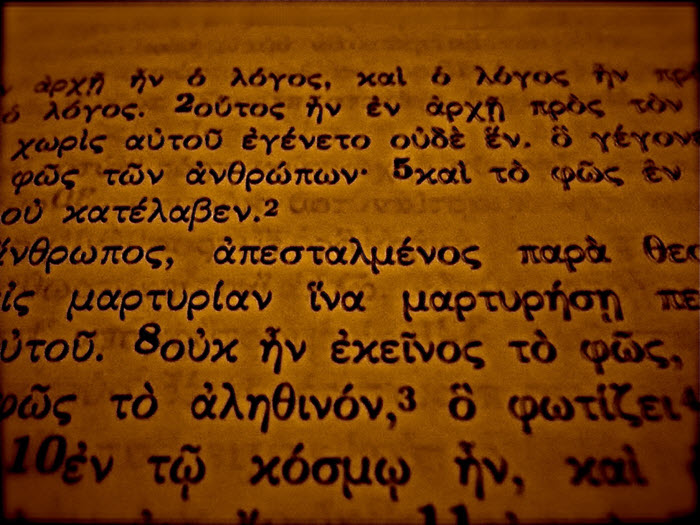 ἀρχῇ ἦν ὁ λόγος, καὶ ὁ λόγος ἦν
ὁ λόγος. 2οὗτος ἦν ἐν ἀρχῇ πρὸς τὸν
χωρὶς αὐτοῦ ἐγένετο οὐδὲ ἕν. ὃ γέγον
φῶς τῶν ἀνθρώπων· 5καὶ τὸ φῶς ἐν
οὐ κατέλαβεν.2
ἄνθρωπος, ἀπεσταλμένος παρὰ θεο
ἰς μαρτυρίαν ἵνα μαρτυρήσῃ πε
ὐτοῦ. 8οὐκ ἦν ἐκεῖνος τὸ φῶς,
φῶς τὸ ἀληθινόν,3 ὃ φωτίζει4
10ἐν τῷ κόσμῳ ἦν, καὶ